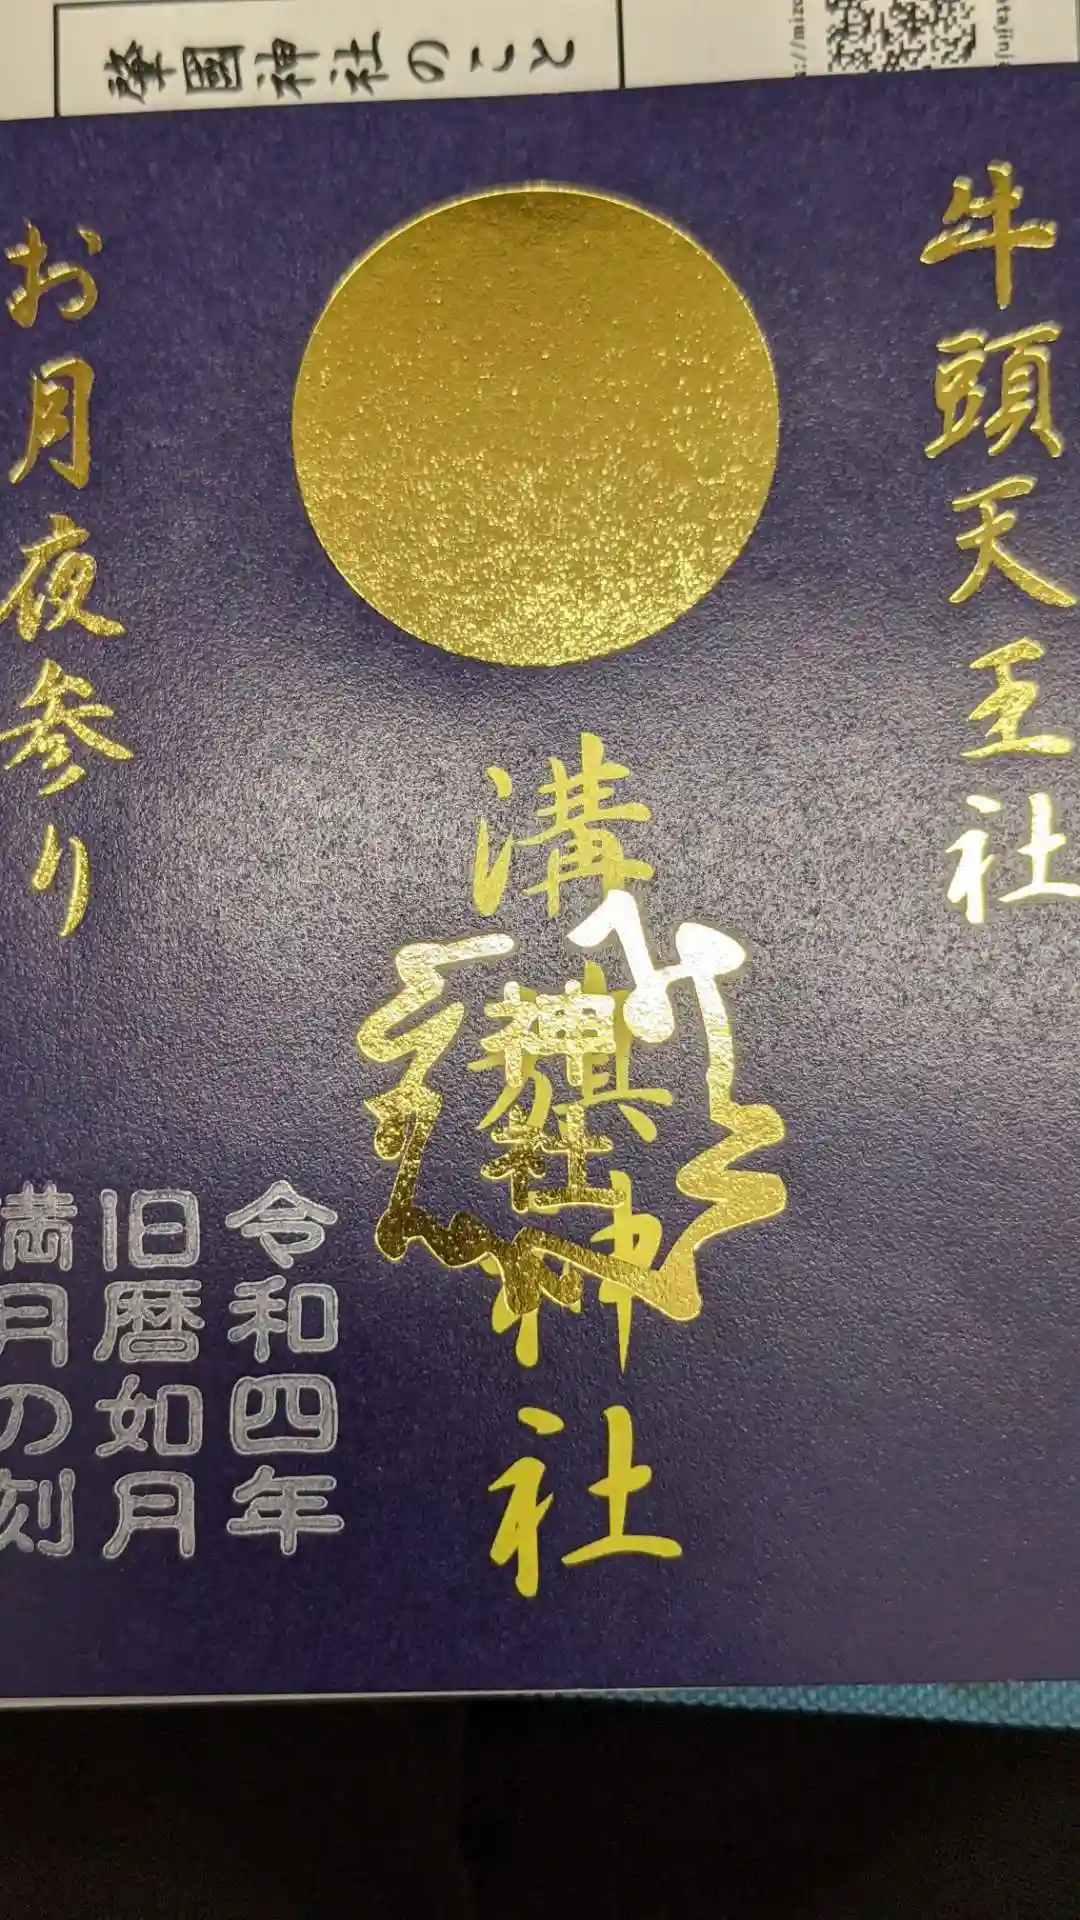 肇國神社のこと
牛頭天王社
溝旗神社
神社
お月夜参り
令和四年
旧暦如月
満月の刻